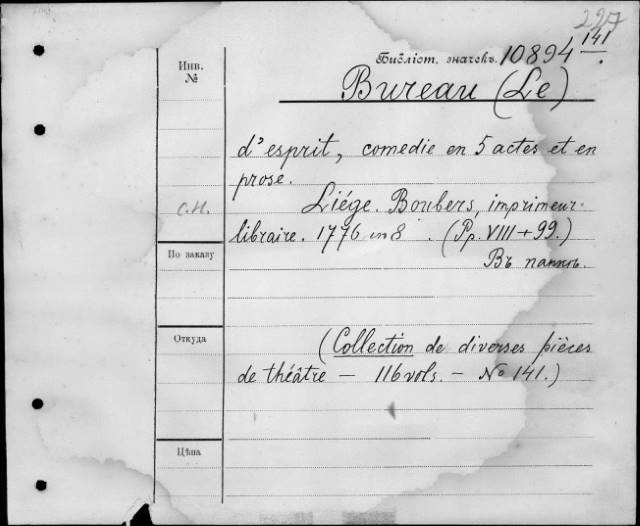 227
Инв. №
Библіот. значекъ. 10894 141
Bureau (Le)
d'esprit, comedie en 5 actes et en
prose.
С.Н.
Liége. Boubers, imprimeur-
libraire. 1776 in 8. (Pp. VIII + 99.)
По заказу
Въ папкѣ.
Откуда
(Collection de diverses pièces
de théâtre — 116 vols. — No 141.)
Цѣна